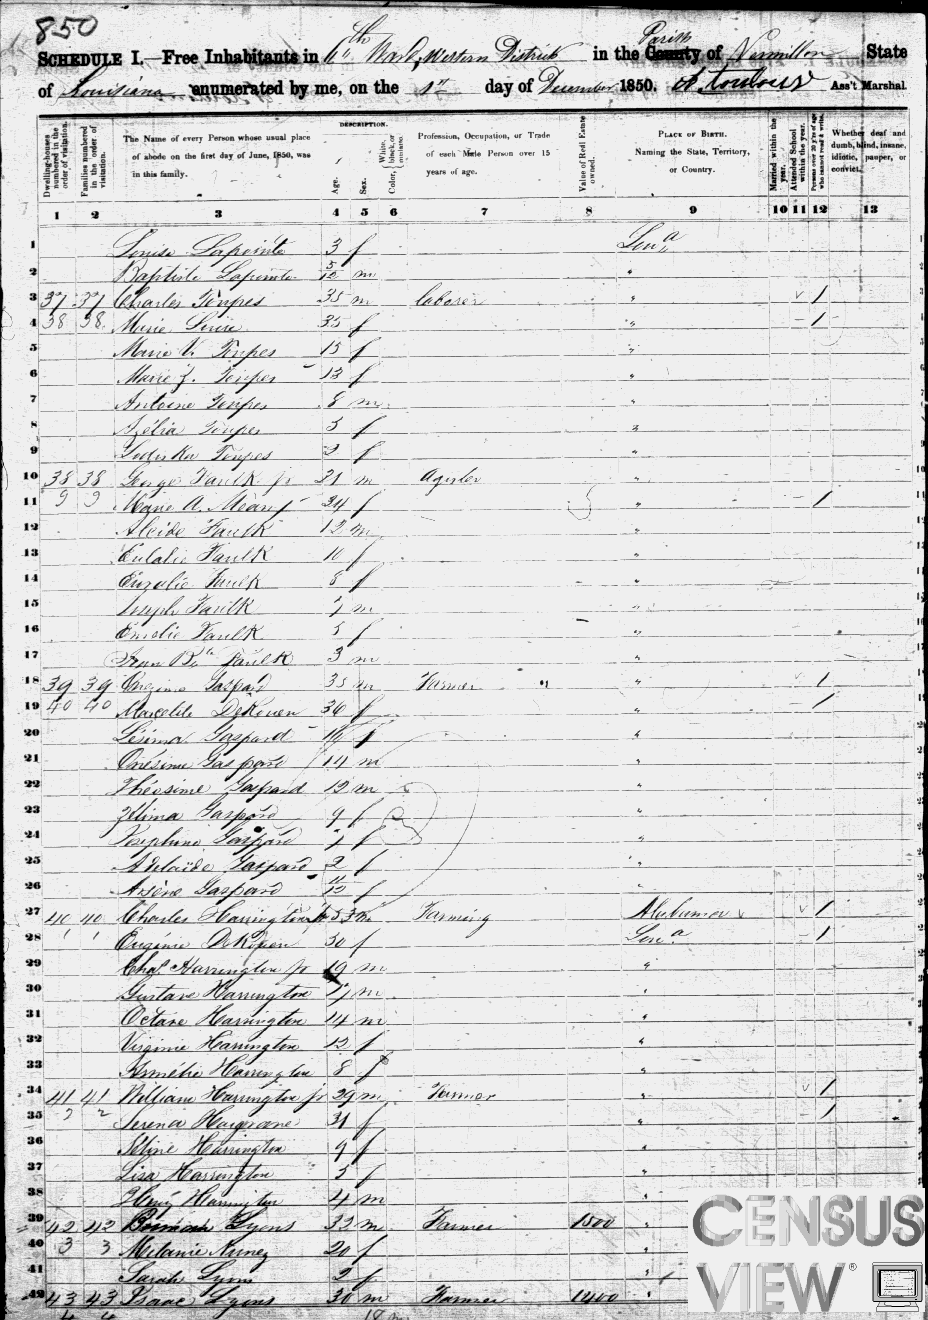 850
SCHEDULE I.—Free Inhabitants in 6th Ward, Western District in the County Parish of Vermillon State
of Louisiana enumerated by me, on the 1st day of December 1850. Ass't Marshal.
DESCRIPTION.
Dwelling-houses numbered in the order of visitation.
Families numbered in the order of visitation.
The Name of every Person whose usual place of abode on the first day of June, 1850, was in this family.
Age.
Sex.
Color, White, black, or mulatto.
Profession, Occupation, or Trade of each Male Person over 15 years of age.
Value of Real Estate owned.
PLACE OF BIRTH. Naming the State, Territory, or Country.
Married within the year.
Attended School within the year.
Persons over 20 y'rs of age who cannot read & write.
Whether deaf and dumb, blind, insane, idiotic, pauper, or convict.
1 2 3 4 5 6 7 8 9 10 11 12 13
1 Louise Lapointe 3 f Loua
2 Baptiste Lapointe 5/12 m "
3 37 37 Charles Toupes 35 m laborer " 1
4 38 38 Marie Louise 35 f " 1
5 Marie V. Toupes 15 f "
6 Marie Z. Toupes 13 f "
7 Antoine Toupes 8 m "
8 Azélia Toupes 5 f "
9 Toupes 3 f "
10 38 38 George Faulk jr 31 m "
11 9 9 Marie A. 34 f " 1
12 Alcide Faulk 12 m "
13 Eulalie Faulk 10 f "
14 Euzelie Faulk 8 f "
15 Joseph Faulk 7 m "
16 Emelie Faulk 5 f "
17 Jean Bte Faulk 3 m "
18 39 39 Onezime Gaspard 35 m Farmer " 1
19 40 40 Marcelite DeKoven 36 f " 1
20 Lesima Gaspard 16 f "
21 Onésime Gaspard 14 m "
22 Théosime Gaspard 12 m "
23 Zelima Gaspard 9 f "
24 Josephine Gaspard 7 f "
25 Adelaïde Gaspard 2 f "
26 Arsène Gaspard 11/12 f "
27 40 40 Charles Harrington 53 m Farming Alabama 1
28 1 1 Eugénie DeKoven 30 f Loua 1
29 Chas Harrington jr 19 m "
30 Gustave Harrington 17 m "
31 Octave Harrington 14 m "
32 Virginie Harrington 12 f "
33 Harrington 8 f "
34 41 41 William Harrington jr 29 m Farmer " 1
35 2 2 Serena Hargrave 31 f " 1
36 Harrington 9 f "
37 Lisa Harrington 5 f "
38 Henry Harrington 4 m "
39 42 42 Lyons 32 m Farmer 1500 "
40 3 3 Melanie Nunez 20 f "
41 Sarah Lyons 2 f "
42 43 43 Isaac Lyons 30 m Farmer 1400 "
CENSUS
VIEW®